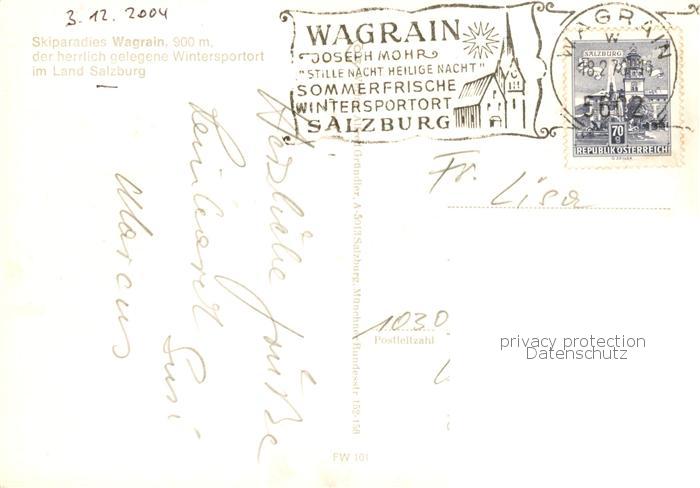 3. 12. 2004
Skiparadies Wagrain, 900 m,
der herrlich gelegene Wintersportort
im Land Salzburg
WAGRAIN
JOSEPH MOHR
"STILLE NACHT HEILIGE NACHT"
SOMMERFRISCHE
WINTERSPORTORT
SALZBURG
WAGRAIN
5602
SALZBURG
70
g
REPUBLIK ÖSTERREICH
Fr. Lisa
Herzliche Grüße
Reinhard Susi
Marcus
Gründler, A-5013 Salzburg, Münchner Bundesstr. 152-158
1030
Postleitzahl
privacy protection
Datenschutz
FW 101